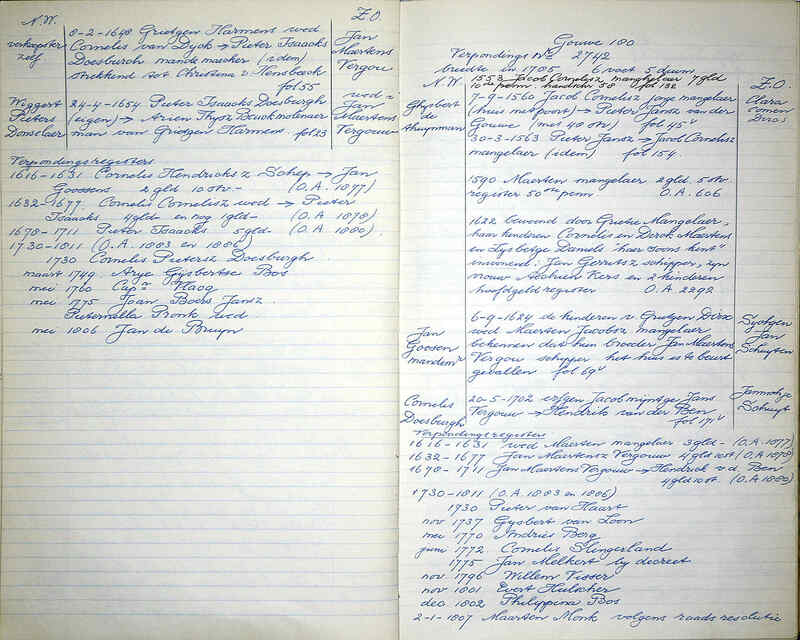 N.W.
Z.O.
verkoopster
zelf
8-2-1648 Grietgen Harmens wed
Cornelis van Dyck → Pieter Isaacks
Doesburch mandemaecker (idem)
strekkend tot Christina v. Hensbeeck
fol 55
Jan
Maertens
Vergou
Wiggert
Pieters
Donselaer
24-4-1654 Pieter Isaacks Doesburgh
(eigen) → Arien Thysz Bouckmolenaer
man van Grietgen Harmens. fol 23
wed v
Jan
Maertens
Vergouw
Verpondingsregisters
1616-1631 Cornelis Hendricksz Schep → Jan
Goossens 2 gld 10 st.- (O.A. 1077)
1632-1677 Cornelis Cornelisz wed → Pieter
Isaacks 4 gld en nog 1 gld- (O.A 1078)
1678-1711 Pieter Isaacks 5 gld- (O.A. 1080).
1730-1811 (O.A. 1083 en 1086)
1730 Cornelis Pietersz Doesburgh.
maart 1749 Arye Gijsbertse Bos
mei 1760 Capn Haag
mei 1775 Joan Boers Jansz.
Pieternella Pronk wed
mei 1806 Jan de Bruyn
Gouwe 180
Verpondings No 2742
breedte in 1705 6 voet 5 duim
N.W.
1553 Jacob Cornelisz mangelaer 7 gld
10de penn. 58 fol 132
Z.O.
Ghysbert
de
7-9-1560 Jacob Cornelisz jonge mangelaer
(huis met poort) → Pieter Jansz van der
Gouwe (met 40 st) fol 45v
30-3-1563 Pieter Jansz → Jacob Cornelisz
mangelaer (idem) fol 154.
Clara
Comen
Dircs
1590 Maerten mangelaer 2 gld. 5 st.
register 50ste penn O.A. 606
1622 bewoond door Grietie Mangelaer,
haar kinderen Cornelis en Dirck Maertens
en Lysbetge Daniels "haer soons kint"
inwonend: Jan Gerritsz schipper, zyn
vrouw Aechien Kers en 2 kinderen
hoofdgeldregister O.A. 2292
Jan
Goosen
mandem'r
6-9-1624 de kinderen v Grietgen Dircx
wed Maerten Jacobsz mangelaer
bekennen dat hun broeder Jan Maertens
Vergou schipper het huis is te beurt
gevallen fol 69v
Sychgen
Jan
Schuyten
Cornelis
Doesburgh
20-5-1702 erfgen Jacobmijntge Jans
Vergouw → Hendrik van der Ben
fol 17v
Jannetje
Schuyt
Verpondingsregisters
1616-1631 wed Maerten mangelaer 3 gld- (O.A. 1077)
1632-1677 Jan Maertensz Vergouw 4 gld 10 st (O.A 1078)
1678-1711 Jan Maertens Vergouw → Hendrick v.d. Ben
4 gld 10 st. (O.A. 1080)
1730-1811 (O.A. 1083 en 1086)
1730 Pieter van Haart
nov 1737 Gysbert van Loon
mei 1770 Andries Berg
juni 1772 Cornelis Slingerland
1775 Jan Melkert by decreet
nov. 1796 Willem Visser
nov 1801 Evert Hulscher
dec 1802 Philippina Bos
2-1-1807 Maarten Monk volgens raads resolutie